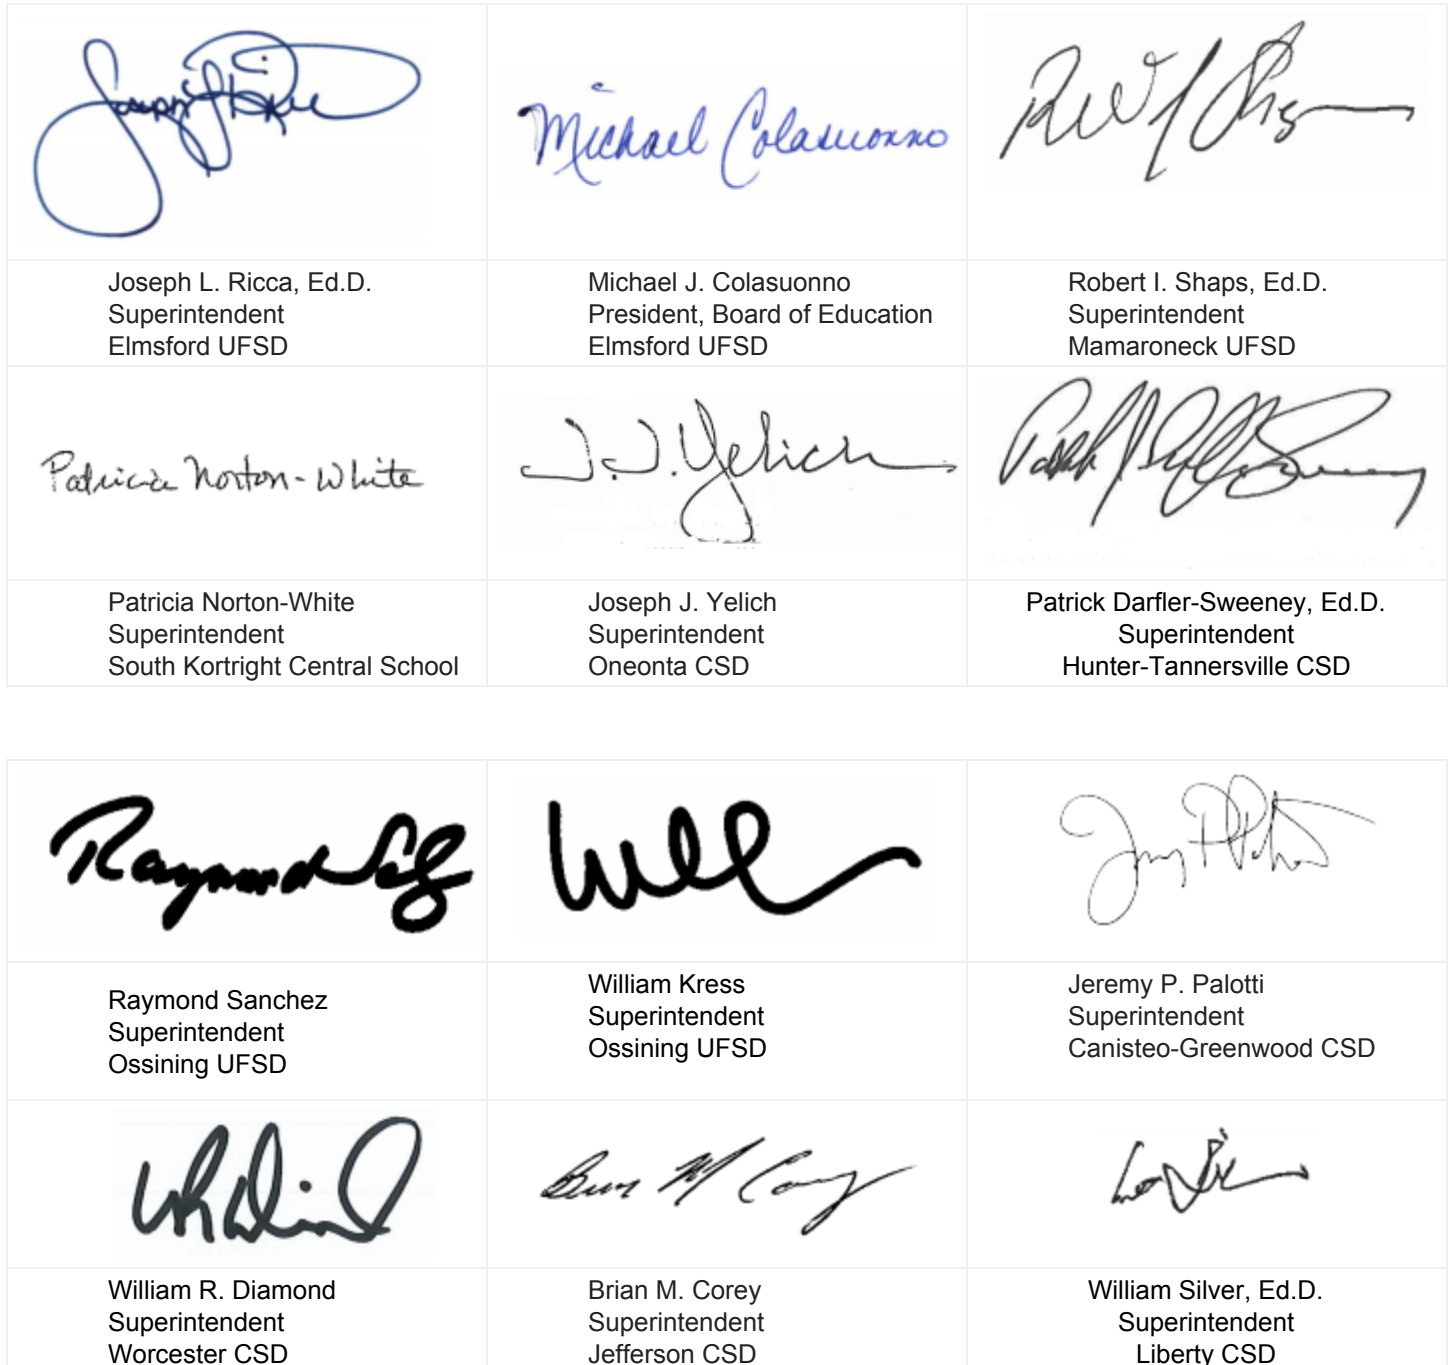 Michael Colasuonno
Joseph L. Ricca, Ed.D.
Superintendent
Elmsford UFSD
Michael J. Colasuonno
President, Board of Education
Elmsford UFSD
Robert I. Shaps, Ed.D.
Superintendent
Mamaroneck UFSD
Patricia Norton-White
J.J. Yelich
Patricia Norton-White
Superintendent
South Kortright Central School
Joseph J. Yelich
Superintendent
Oneonta CSD
Patrick Darfler-Sweeney, Ed.D.
Superintendent
Hunter-Tannersville CSD
Raymond Sanchez
Superintendent
Ossining UFSD
William Kress
Superintendent
Ossining UFSD
Jeremy P. Palotti
Superintendent
Canisteo-Greenwood CSD
William R. Diamond
Superintendent
Worcester CSD
Brian M. Corey
Superintendent
Jefferson CSD
William Silver, Ed.D.
Superintendent
Liberty CSD